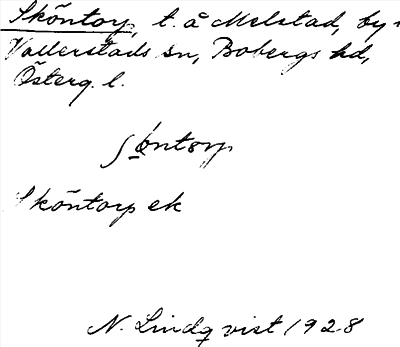 Sköntorp, t. å Melstad, by i
Vallerstads sn, Bobergs hd,
Österg. l.
ʃöntorp
Sköntorp ek
N. Lindqvist 1928